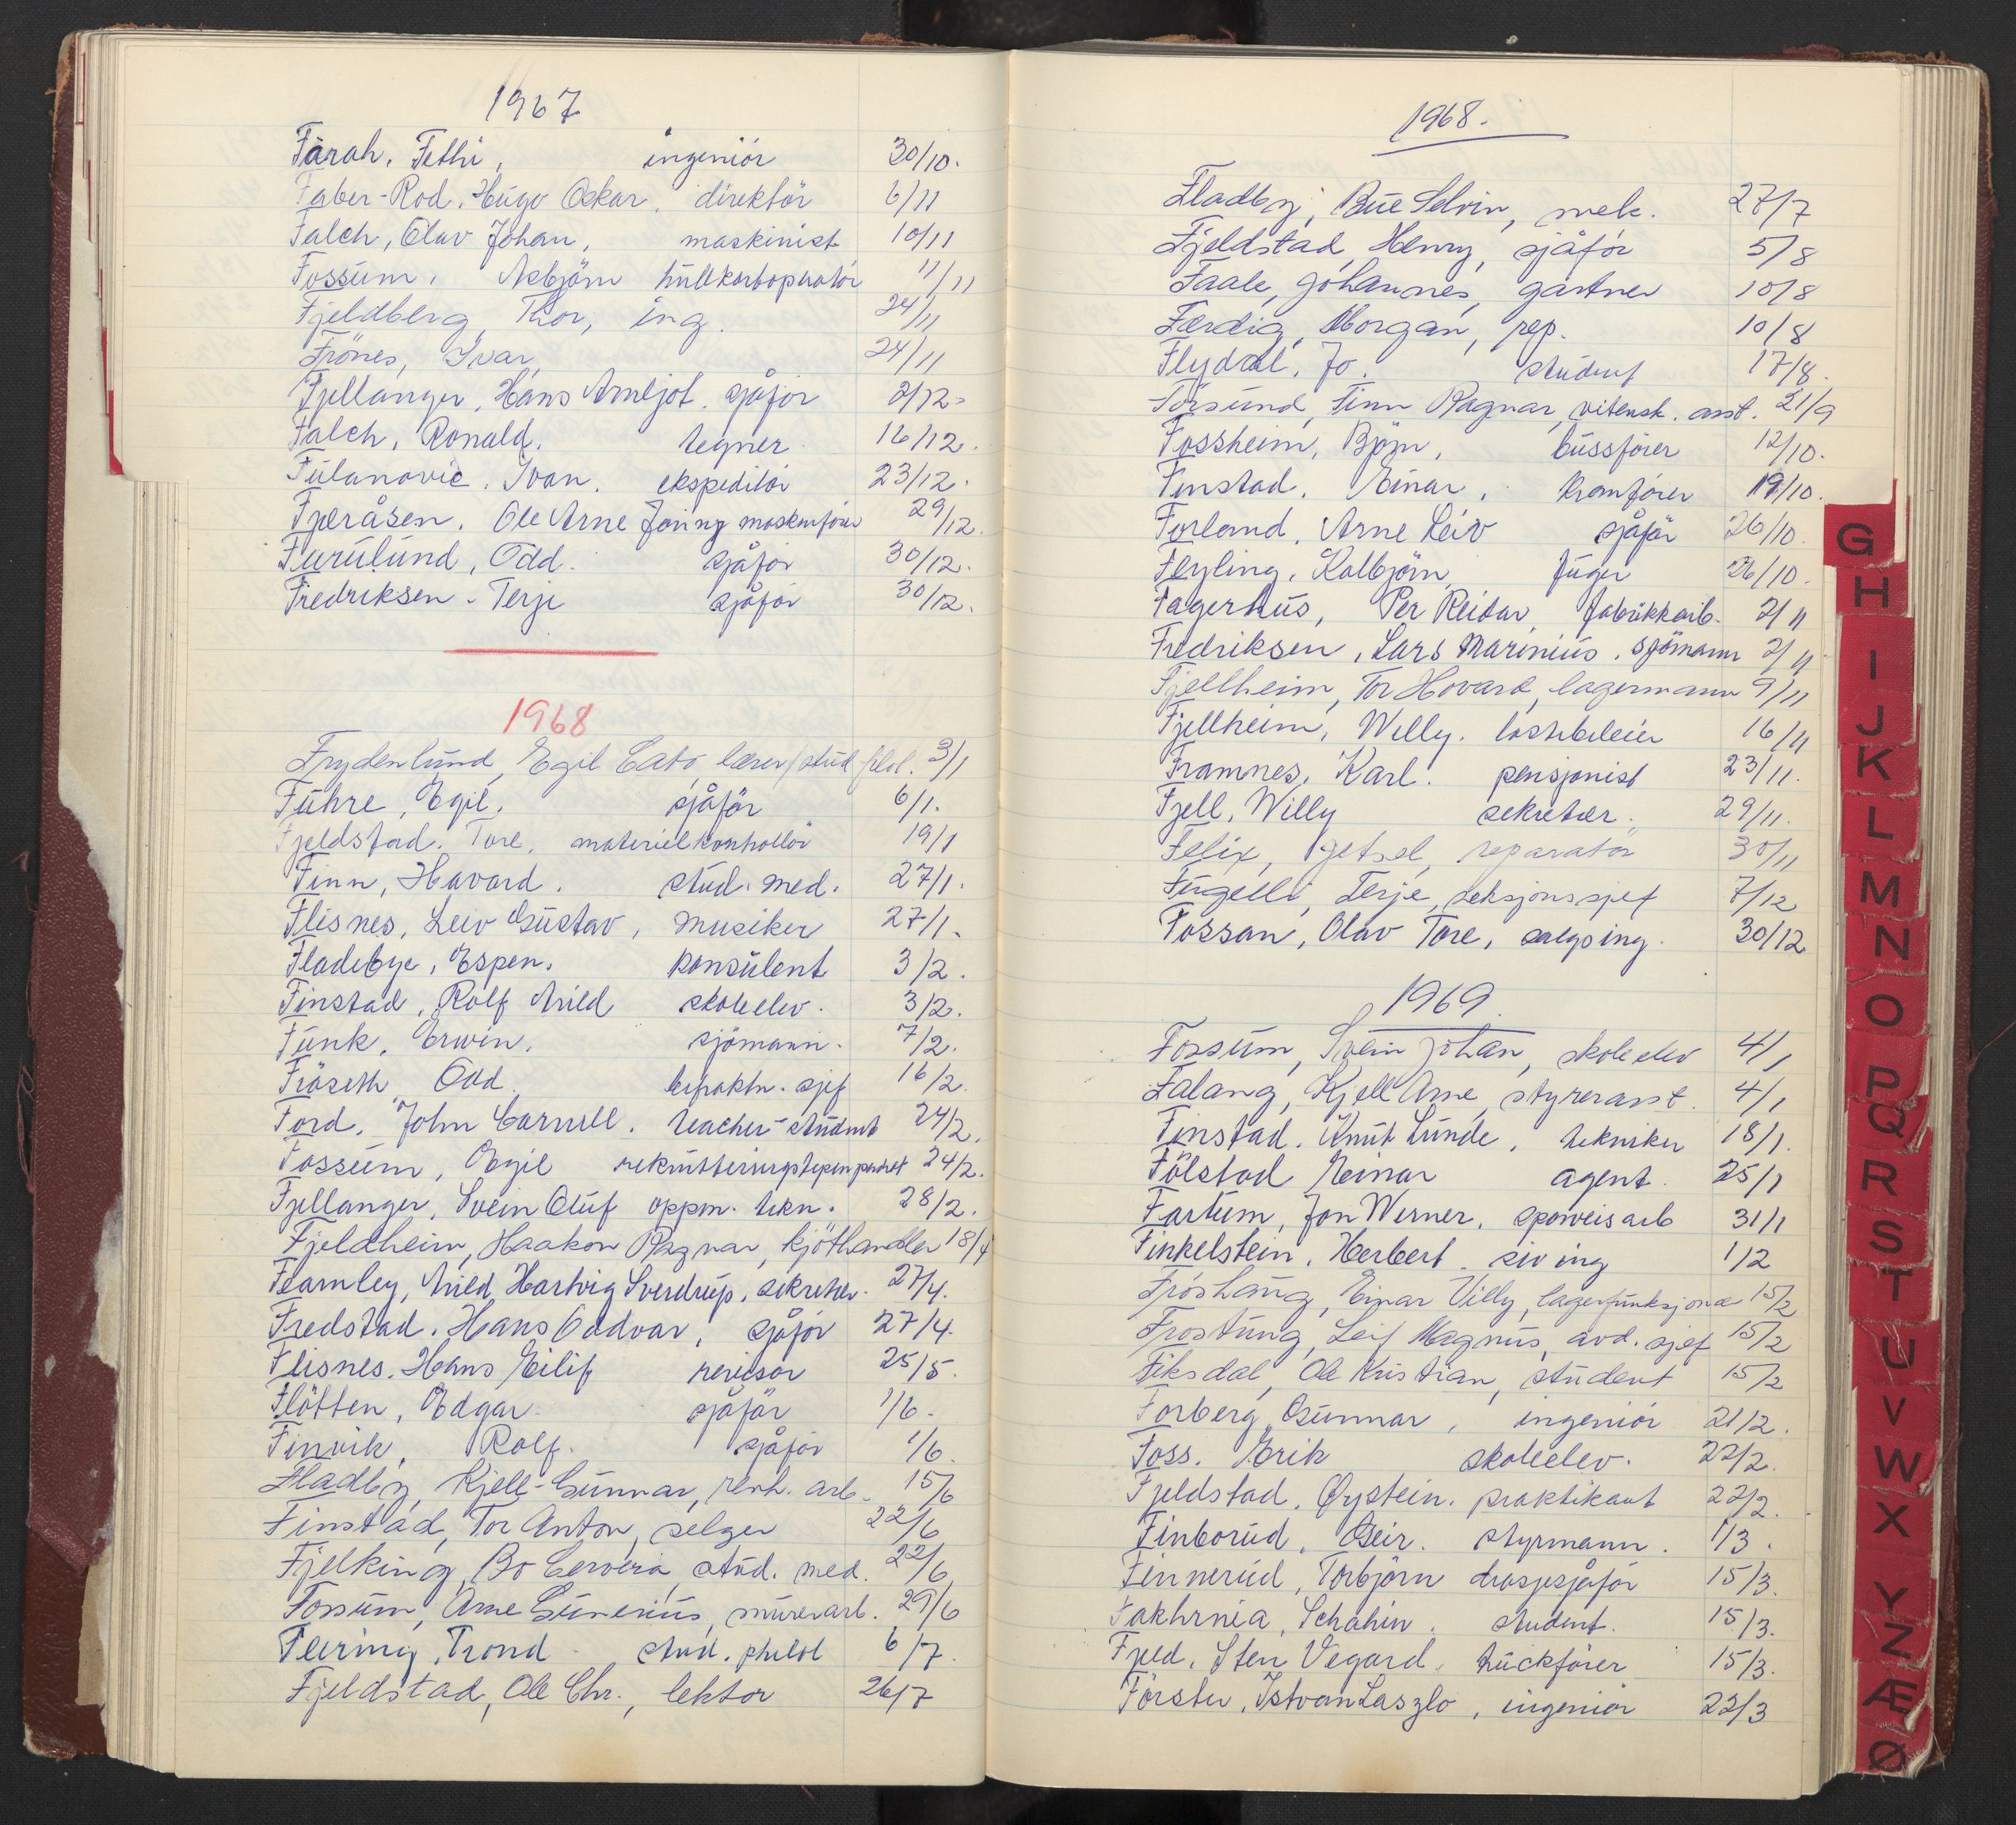 1967
Farah, Fethi, ingeniör 30/10.
Faber-Rod, Hugo Oskar, direktör 6/11
Falch, Olav Johan, maskinist 10/11
Fossum, Asbjörn hullkortoperatör 11/11
Fjeldberg, Thor, ing. 24/11
Frönes, Ivar, 24/11
Fjellanger, Hans Arnljot, sjåför 2/12
Falch, Ronald, tegner 16/12.
Fulanovic, Ivan, ekspeditör 23/12.
Fjæråsen, Ole Arne maskinförer 29/12.
Furulund, Odd. sjåför 30/12.
Fredriksen, Terje sjåför 30/12.
1968
Frydenlund, Egil Cato, lærer/stud filol. 3/1
Führe, Egil, sjåför 6/1.
Fjeldstad, Tore, materielkontrollör 19/1
Finn, Havard. stud. med. 27/1.
Flisnes, Leiv Gustav, musiker 27/1.
Fladebye, Espen. konsulent 3/2.
Finstad, Rolf Arild skoleelev. 3/2.
Funk, Erwin. sjömann. 7/2.
Fröseth, Odd. sjef 16/2.
Ford, John Carnell. teacher-student 24/2.
Fossum, Egil 24/2.
Fjellanger, Svein Oluf oppm. tekn. 28/2.
Fjeldheim, Haakon Ragnar, kjöthandler 18/4
Fearnley, Arild Hartvig Sverdrup, sekretær. 27/4.
Fredstad, Hans Oddvar, sjåför 27/4.
Flisnes, Hans Eilif revisor 25/5.
Flötten, Edgar. sjåför 1/6.
Finvik, Rolf. sjåför 1/6.
Fladby, Kjell-Gunnar, renh. arb. 15/6
Finstad, Tor Anton, selger 22/6
Fjelking, Bo Cervera, stud. med. 22/6
Fossum, Arne Gunerius, murerarb. 29/6
Flering, Trond - stud. philol 6/7.
Fjeldstad, Ole Chr., lektor 26/7
1968.
Fladby, Bue Selvin, mek. 27/7
Fjeldstad, Henry, sjåför 5/8
Faale, Johannes, gartner 10/8
Færdig, Morgan, rep. 10/8
Flydal, Jo. student 17/8.
Forsund, Finn Ragnar, vitensk. asst. 21/9
Fossheim, Björn, bussförer 12/10.
Finstad, Einar, kranförer 19/10.
Forland, Arne Leiv sjåför 26/10.
Fleyling, Kolbjörn 26/10.
Fagerhus, Per Reidar, fabrikkarb. 2/11
Fredriksen, Lars Marinius, sjömann 2/11
Fjellheim, Tor Hovard, lagermann 9/11
Fjellheim, Willy. lastebileier 16/11
Framnes, Karl. pensjonist 23/11.
Fjell, Willy sekretær. 29/11.
Felix, Getsel, reparatör 30/11
Fugelli, Terje, seksjonssjef 7/12
Fossan, Olav Tore, salgsing. 30/12
1969.
Fossum, Svein Johan, skoleelev 4/1
Falang, Kjell Arne, styrerasst. 4/1
Finstad, Knut Lunde, tekniker 18/1.
Fölstad Einar agent. 25/1
Fartum, Jon Werner, sporveisarb 31/1
Finkelstein, Herbert. siv ing 1/2
Fröshaug, Einar Villy, lagerfunksjonæ 15/2
Frostung, Leif Magnus, avd. sjef 15/2
Fiksdal, Ole Kristian, student 15/2
Forberg, Gunnar, ingeniör 21/2.
Foss, Erik skoleelev. 22/2.
Fjeldstad, Øystein. praktikant 22/2.
Finborud, Geir. styrmann. 1/3.
Finnerud, Torbjörn drosjesjåför 15/3.
Fakhrnia, Schahin. student. 15/3.
Fjeld, Sten Vegard. truckförer 15/3.
Förster, Istvan Laszlo, ingeniör 22/3
G
H
I
J
K
L
M
N
O
P
Q
R
S
T
U
V
W
X
Y
Z
Æ
Ø